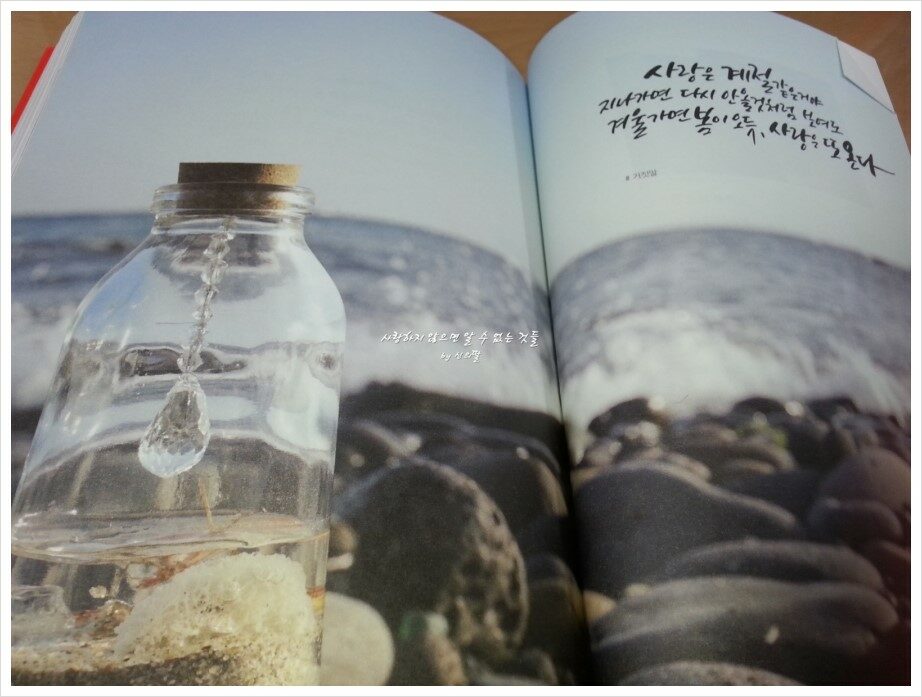 사랑은 계절같은거야
지나가면 다시 안올것처럼 보여도
겨울가면 봄이 오듯, 사랑은 또 온다
# 거짓말
사랑하지 않으면 알 수 없는 것들
by 신의딸